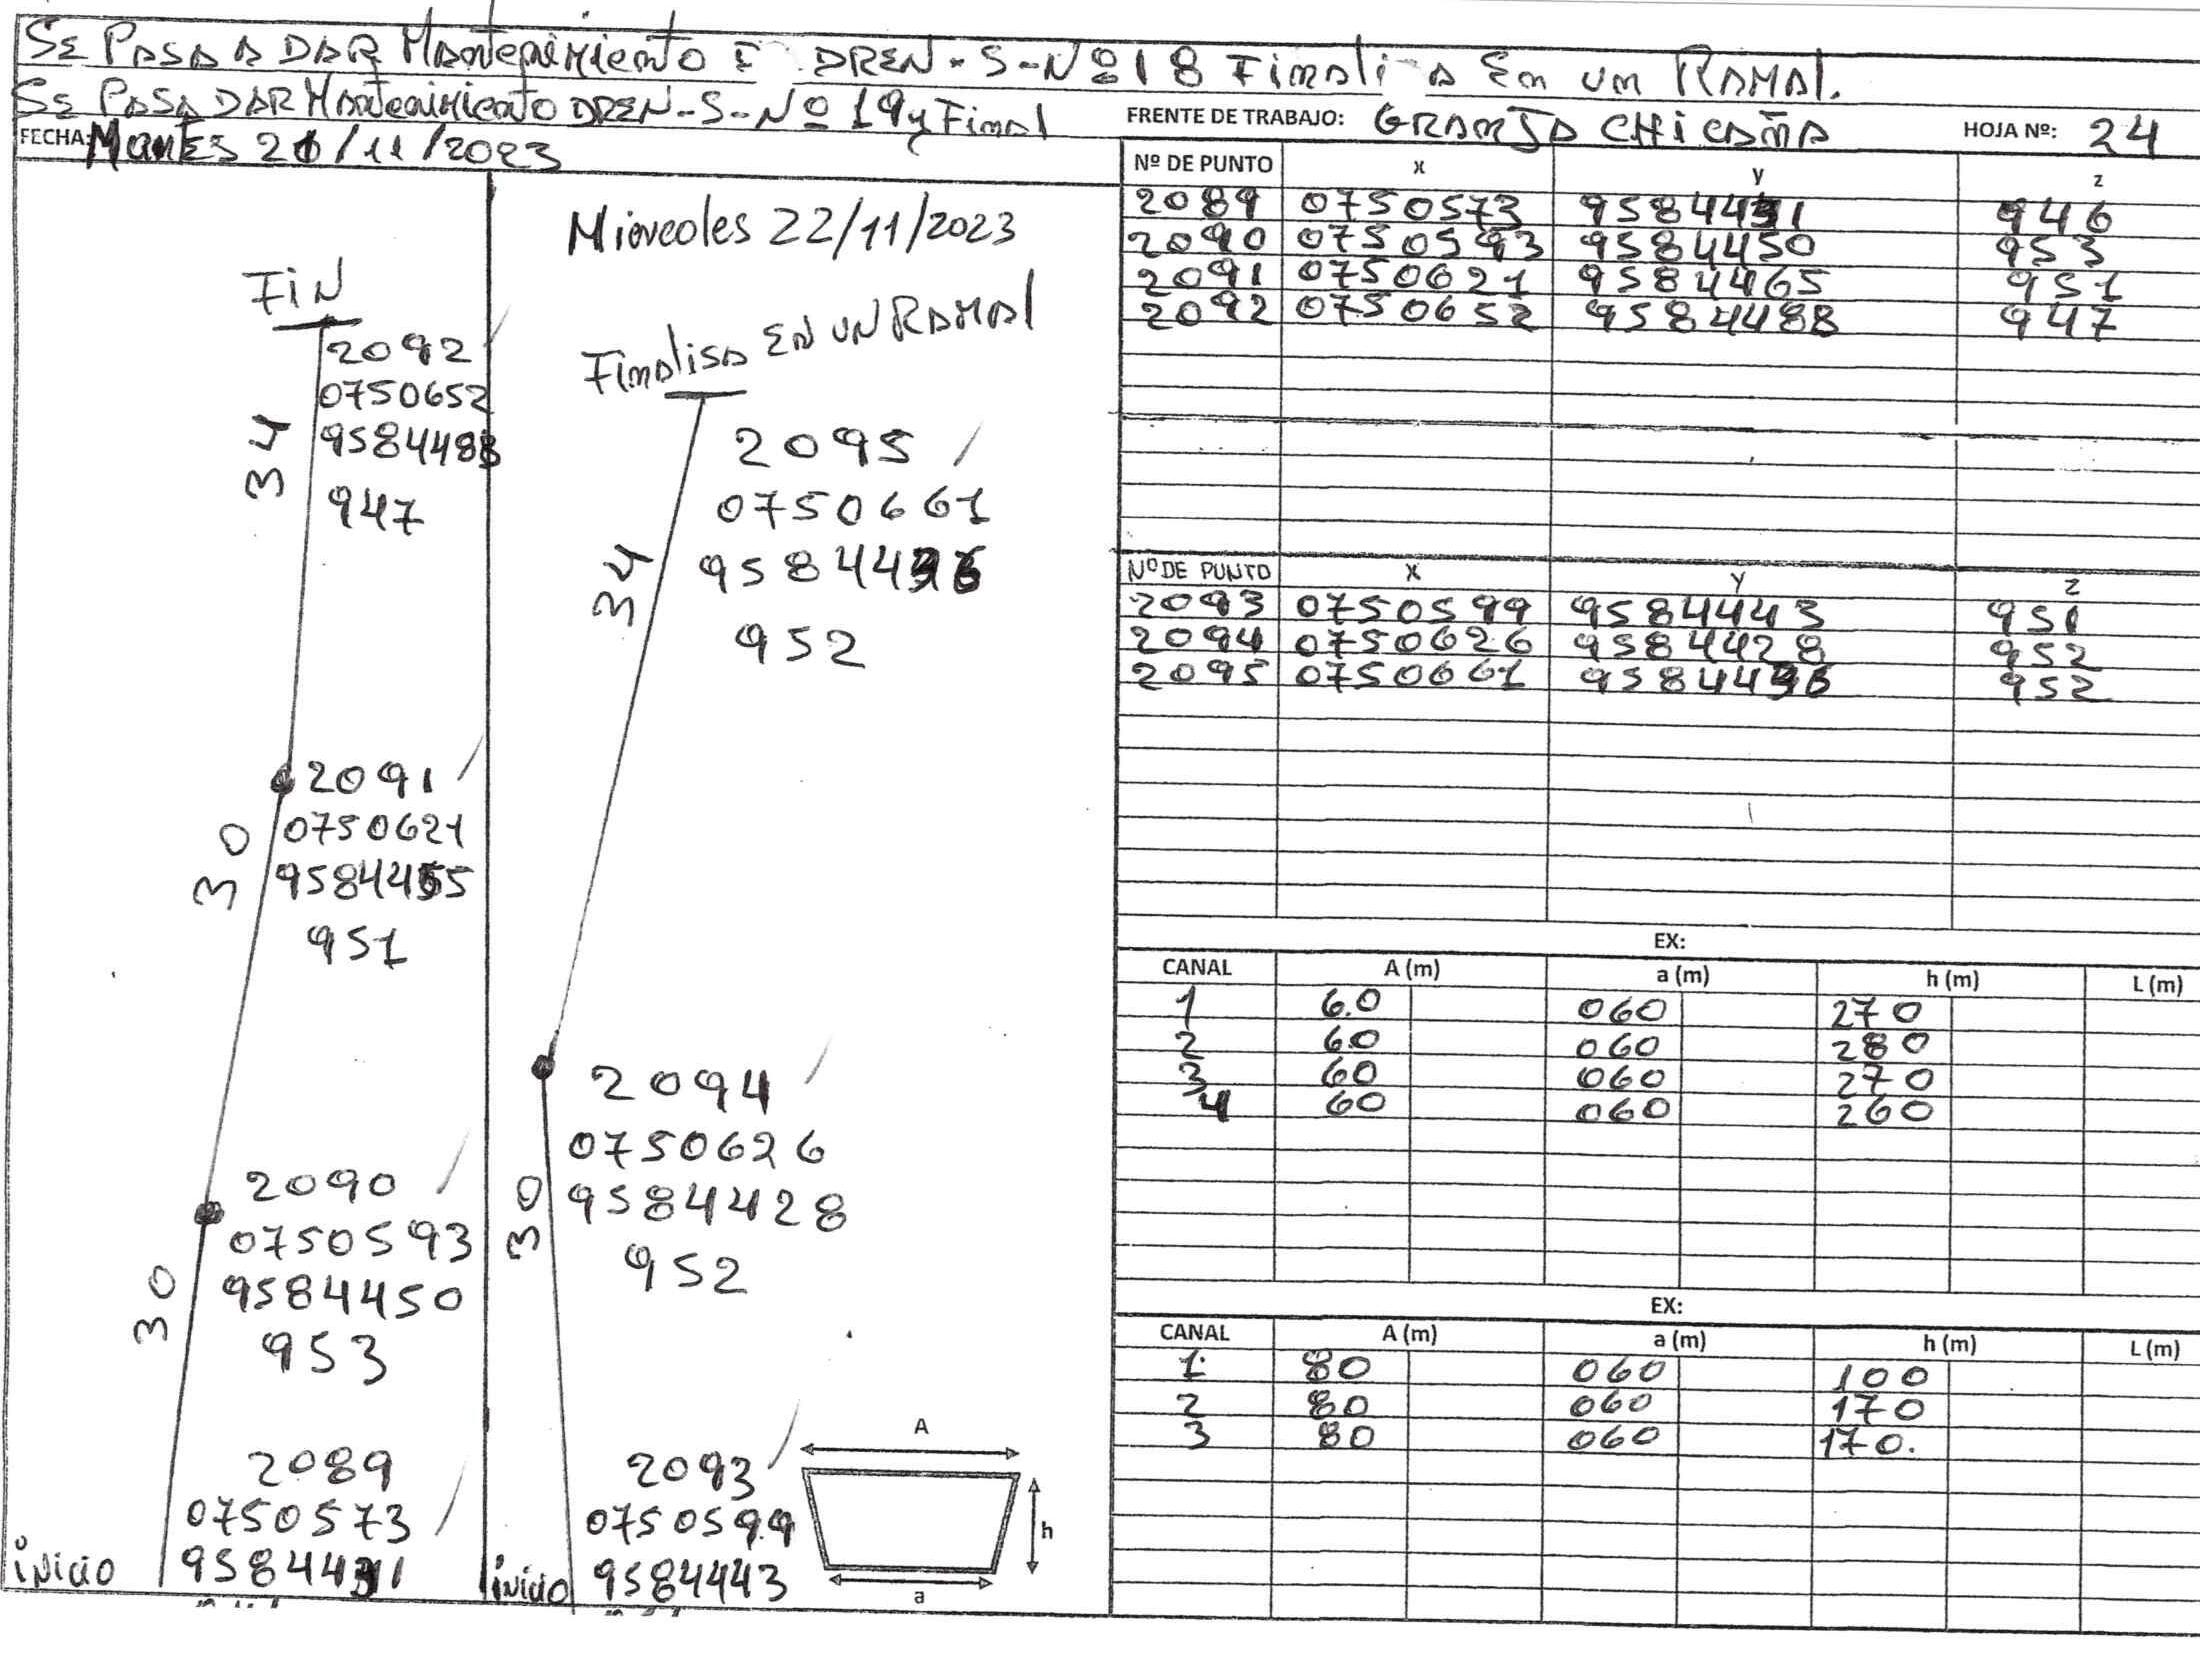 SE PASA A DAR Mantenimiento DREN-S-Nº 18 en un RAMAL.
SE PASA DAR Mantenimiento DREN-S-Nº 19 y Final
FRENTE DE TRABAJO: GRANJA CHICAÑA
HOJA Nº: 24
FECHA: Martes 21/11/2023
Miercoles 22/11/2023
FIN
2092
0750652
9584488
947
34
2091
0750621
951
30
2090
0750593
9584450
953
30
2089
0750573
inicio
Finalisa EN UN RAMAL
2095
0750661
952
34
2094
0750626
9584428
952
30
2093
0750599
9584443
inicio
A
h
a
Nº DE PUNTO x y z
2089 0750573 946
2090 0750593 9584450 953
2091 0750621 9584465 951
2092 0750652 9584488 947
Nº DE PUNTO x y z
2093 0750599 9584443 951
2094 0750626 9584428 952
2095 0750661 952
EX:
CANAL A (m) a (m) h (m) L (m)
1 6.0 060 270
2 60 060 280
3 60 060 270
4 60 060 260
EX:
CANAL A (m) a (m) h (m) L (m)
1 80 060 100
2 80 060 170
3 80 060 170.